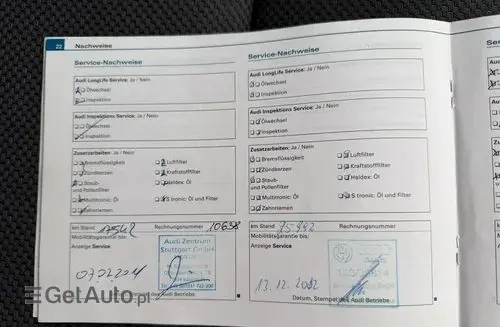 22 Nachweise
Service-Nachweise
Audi LongLife Service: Ja / Nein
Ölwechsel
Inspektion
Audi Inspektions Service: Ja / Nein
Ölwechsel
Inspektion
Zusatzarbeiten: Ja / Nein
Bremsflüssigkeit Luftfilter
Zündkerzen Kraftstofffilter
Staub- Haldex: Öl
und Pollenfilter
Multitronic: Öl S tronic: Öl und Filter
Zahnriemen
km Stand Rechnungsnummer 10638
Mobilitätsgarantie bis:
Anzeige Service
Audi Zentrum
Stuttgart GmbH
des Audi Betriebs
Service-Nachweise
Audi LongLife Service: Ja / Nein
Ölwechsel
Inspektion
Audi Inspektions Service: Ja / Nein
Ölwechsel
Inspektion
Zusatzarbeiten: Ja / Nein
Bremsflüssigkeit Luftfilter
Zündkerzen Kraftstofffilter
Staub- Haldex: Öl
und Pollenfilter
Multitronic: Öl S tronic: Öl und Filter
Zahnriemen
km Stand Rechnungsnummer
Mobilitätsgarantie bis:
Anzeige Service
13.12.2012
Datum, Stempel des Audi Betriebs
GetAuto.pl